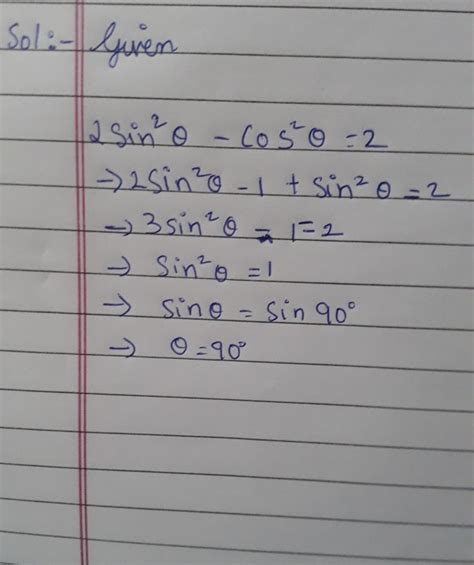 Sol:- Given
2Sin²θ - Cos²θ = 2
→ 2Sin²θ - 1 + Sin²θ = 2
→ 3Sin²θ - 1 = 2
→ Sin²θ = 1
→ Sinθ = Sin 90°
→ θ = 90°